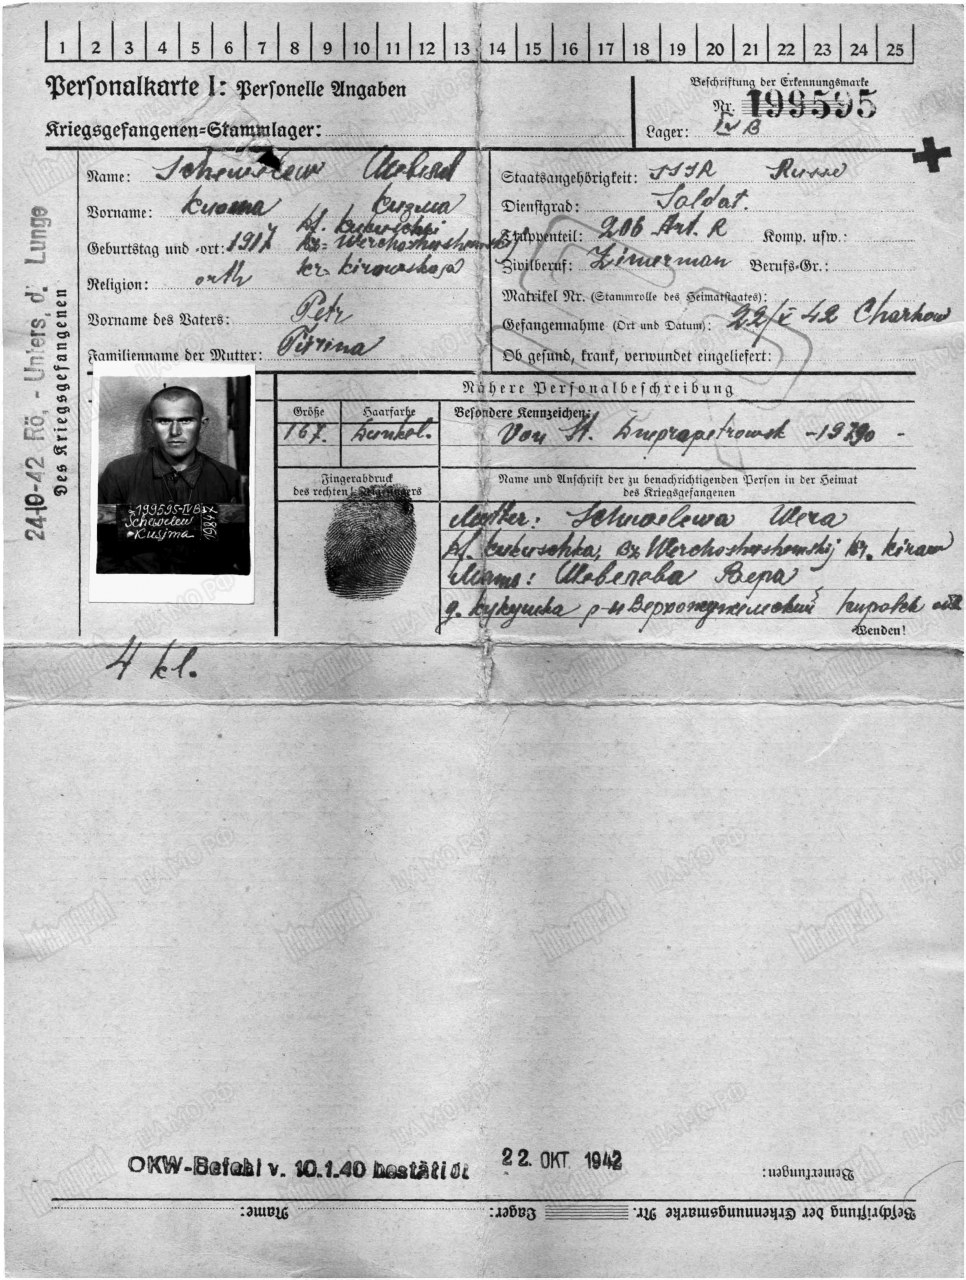 1 2 3 4 5 6 7 8 9 10 11 12 13 14 15 16 17 18 19 20 21 22 23 24 25
Personalkarte I: Personelle Angaben
Kriegsgefangenen=Stammlager:
Beschriftung der Erkennungsmarke
Nr. 199595
Lager: IV B
Des Kriegsgefangenen
24-10-42 Rö, - Unters, d. Lunge
Name: Schewelew
Vorname: Kusma Кузма
Geburtstag und -ort: 1917
kr. Kirowskaja
Religion: orth
Vorname des Vaters: Petr
Familienname der Mutter:
Staatsangehörigkeit: SSSR Russe
Dienstgrad: Soldat.
Truppenteil: 206 Art. R Komp. usw.:
Zivilberuf: Zimerman Berufs-Gr.:
Matrikel Nr. (Stammrolle des Heimatstaates):
Gefangennahme (Ort und Datum): 22/V 42 Charkow
Ob gesund, krank, verwundet eingeliefert:
Nähere Personalbeschreibung
Größe Haarfarbe Besondere Kennzeichen:
167. Dunkel. Von St. Dnepropetrowsk
Fingerabdruck
des rechten Zeigefingers
Name und Anschrift der zu benachrichtigenden Person in der Heimat
des Kriegsgefangenen
Mutter: Schewelewa Wera
Мама: Шевелева Вера
д. Кукушка р-н Верхошижемский Кировск обл
Wenden!
199595-IVB
Schewelew
Kusjma
1984
4 kl.
OKW-Befehl v. 10.1.40 bestätigt 22. OKT 1942
Bemerkungen:
Beschriftung der Erkennungsmarke Nr. Lager: Name:
ЦАМО РФ
Мемориал